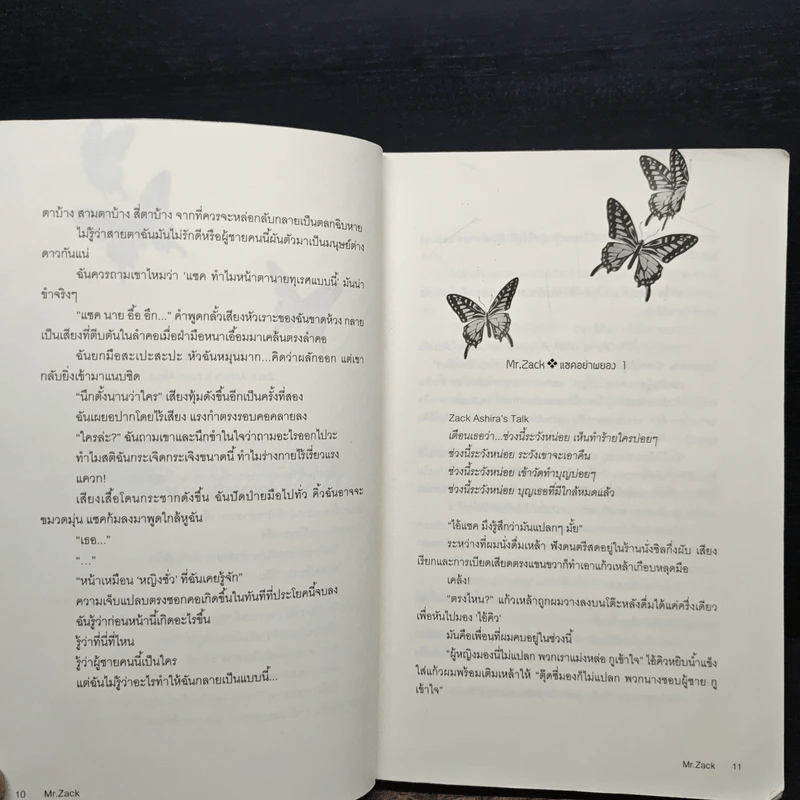 ตาบ้าง สามตาบ้าง สี่ตาบ้าง จากที่ควรจะหล่อกลับกลายเป็นตลกฉิบหาย
ไม่รู้ว่าสายตาฉันมันไม่รักดีหรือผู้ชายคนนี้ผันตัวมาเป็นมนุษย์ต่าง
ดาวกันแน่
ฉันควรถามเขาไหมว่า 'แซค ทำไมหน้าตานายทุเรศแบบนี้' มันน่า
ขำจริงๆ
"แซค นาย อื้อ อึก..." คำพูดกลั้วเสียงหัวเราะของฉันขาดห้วง กลาย
เป็นเสียงที่ตีบตันในลำคอเมื่อฝ่ามือหนาเอื้อมมาเคล้นตรงลำคอ
ฉันยกมือสะเปะสะปะ หัวฉันหมุนมาก...คิดว่าผลักออก แต่เขา
กลับยิ่งเข้ามาแนบชิด
"นึกตั้งนานว่าใคร" เสียงทุ้มดังขึ้นอีกเป็นครั้งที่สอง
ฉันเผยอปากโดยไร้เสียง แรงกำตรงรอบคอคลายลง
"ใครล่ะ?" ฉันถามเขาและนึกขำในใจว่าถามอะไรออกไปวะ
ทำไมสติฉันกระเจิดกระเจิงขนาดนี้ ทำไมร่างกายไร้เรี่ยวแรง
แควก!
เสียงเสื้อโดนกระชากดังขึ้น ฉันปัดป่ายมือไปทั่ว คิ้วฉันอาจจะ
ขมวดมุ่น แซคก้มลงมาพูดใกล้หูฉัน
"เธอ..."
"..."
"หน้าเหมือน 'หญิงชั่ว' ที่ฉันเคยรู้จัก"
ความเจ็บแปลบตรงซอกคอเกิดขึ้นในทันทีที่ประโยคนี้จบลง
ฉันรู้ว่าก่อนหน้านี้เกิดอะไรขึ้น
รู้ว่าที่นี่ที่ไหน
รู้ว่าผู้ชายคนนี้เป็นใคร
แต่ฉันไม่รู้ว่าอะไรทำให้ฉันกลายเป็นแบบนี้...
10 Mr.Zack
Mr.Zack ❖ แซคอย่าผยอง 1
Zack Ashira's Talk
เตือนเธอว่า...ช่วงนี้ระวังหน่อย เห็นทำร้ายใครบ่อยๆ
ช่วงนี้ระวังหน่อย ระวังเขาจะเอาคืน
ช่วงนี้ระวังหน่อย เข้าวัดทำบุญบ่อยๆ
ช่วงนี้ระวังหน่อย บุญเธอที่มีใกล้หมดแล้ว
"ไอ้แซค มึงรู้สึกว่ามันแปลกๆ มั้ย"
ระหว่างที่ผมนั่งดื่มเหล้า ฟังดนตรีสดอยู่ในร้านนั่งชิลกึ่งผับ เสียง
เรียกและการเบียดเสียดตรงแขนขวาก็ทำเอาแก้วเหล้าเกือบหลุดมือ
เคล้ง!
"ตรงไหน?" แก้วเหล้าถูกผมวางลงบนโต๊ะหลังดื่มได้แค่ครึ่งเดียว
เพื่อหันไปมอง 'ไอ้คิว'
มันคือเพื่อนที่ผมคบอยู่ในช่วงนี้
"ผู้หญิงมองนี่ไม่แปลก พวกเราแม่งหล่อ กูเข้าใจ" ไอ้คิวหยิบน้ำแข็ง
ใส่แก้วผมพร้อมเติมเหล้าให้ "ตุ๊ดซี่มองก็ไม่แปลก พวกนางชอบผู้ชาย กู
เข้าใจ"
Mr.Zack 11